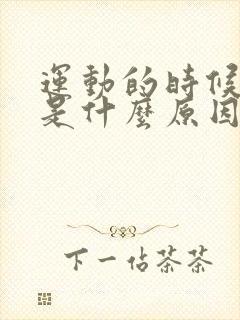 運動的時候
是什麼原因
下一佔茶茶